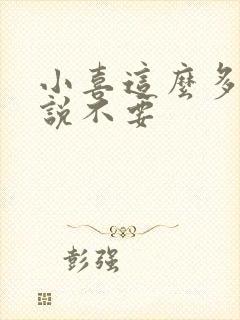 小喜這麼多
說不要
彭强